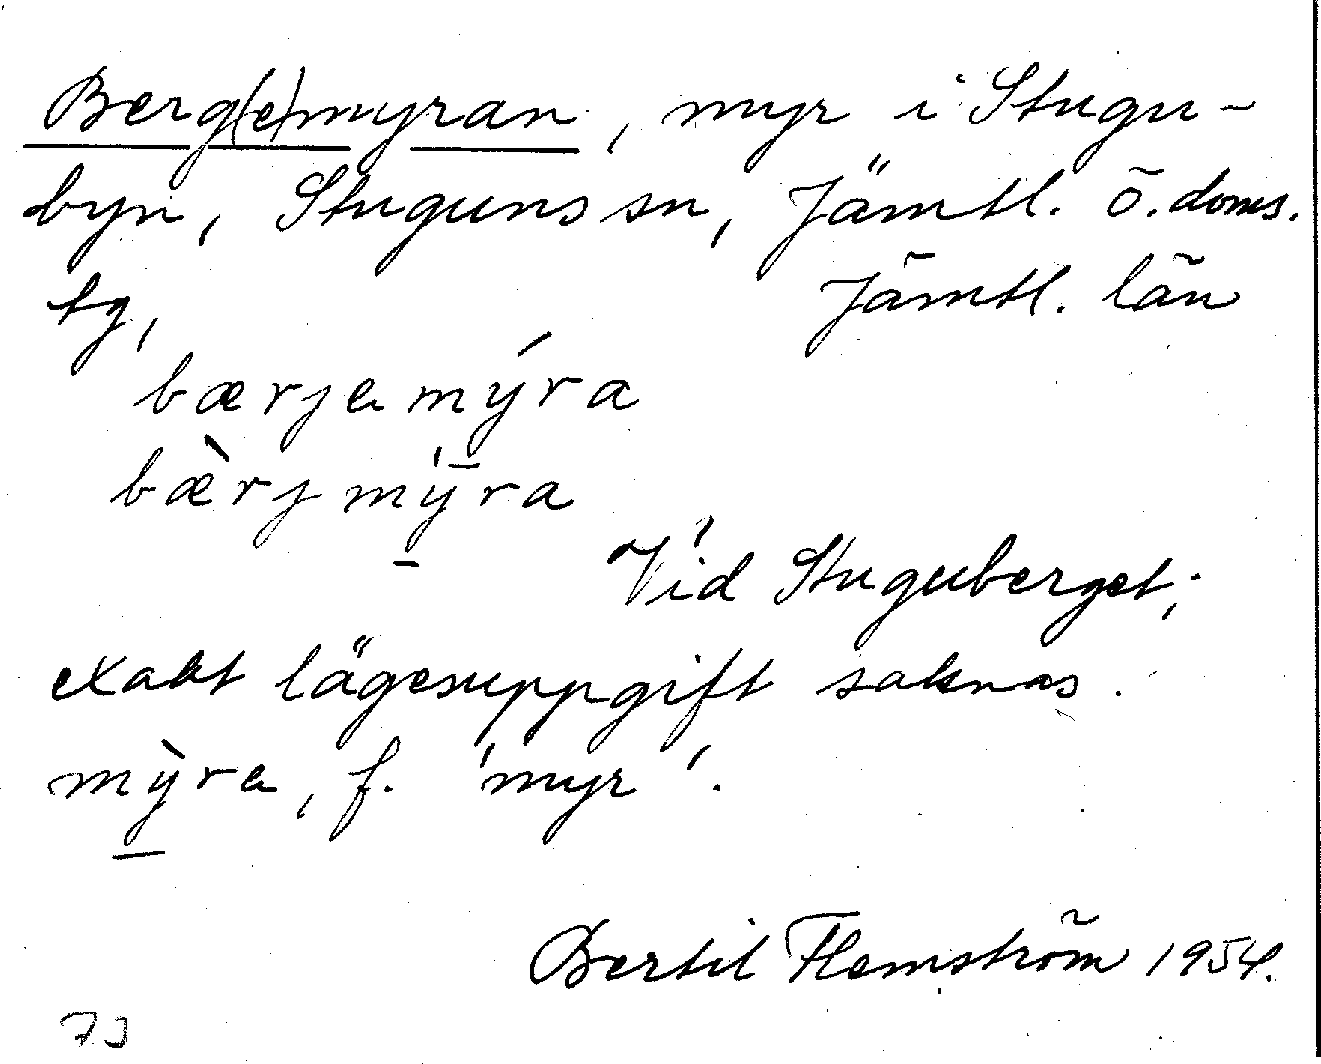 Berg(e)myran, myr i Stugu-
byn, Stuguns sn, Jämtl. ö. doms.
tg, Jämtl. län
bærjemýra
bæ̀rjmȳ́ra
Vid Stuguberget;
exakt lägesuppgift saknas.
mỳra, f. 'myr'.
Bertil Flemström 1954.